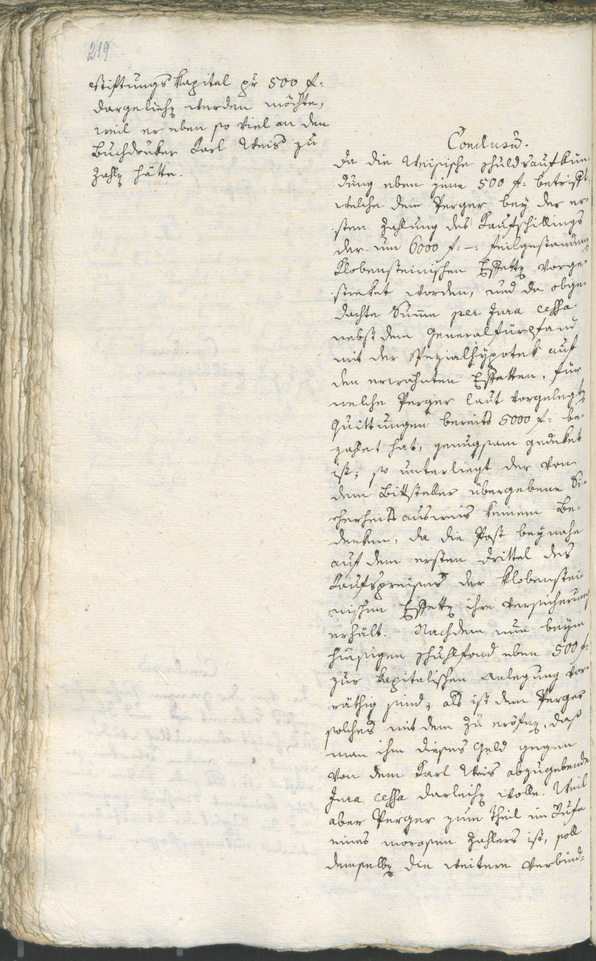 219
Stiftungskapital pr 500 f:
dargeliehen werden möchte,
weil er eben so viel an den
Buchdruker Karl Weis zu
zahlen hätte.
Conclusum.
Da die Weisische Schuldsaufkün-
dung eben jene 500 f: betrift,
welche dem Perger bey der er-
sten Zahlung des Kaufschillings
der um 6000 f:-: feilgestandenen
Klobensteinischen Effetten vorge-
streket worden, und da obge-
dachte Summe per Jura cessa
nebst dem Generalfürpfand
mit der Spezialhypotek auf
den erwähnten Effetten, für
welche Perger laut vorgelegten
Quittungen bereits 5000 f: be-
zahlet hat, genugsam gedeket
ist; so unterliegt der von
dem Bittsteller übergebene Si-
cherheitsausweis keinem Be-
denken, da die Post beynahe
auf dem ersten Drittel des
Kaufspreises der Klobenstei-
nischen Effetten ihre Versicherung
erhält. Nachdem nun beym
hiesigen Schulfond eben 500 f:
zur kapitalischen Anlegung vor-
räthig sind; als ist dem Perger
solches mit dem zu eröfnen, daß
man ihm dieses Geld gegen
von dem Karl Weis abzugebende
Jura cessa darleihen wolle. Weil
aber Perger zum Theil im Rufe
eines morosen Zahlers ist, soll
demselben die weitere Verbind-